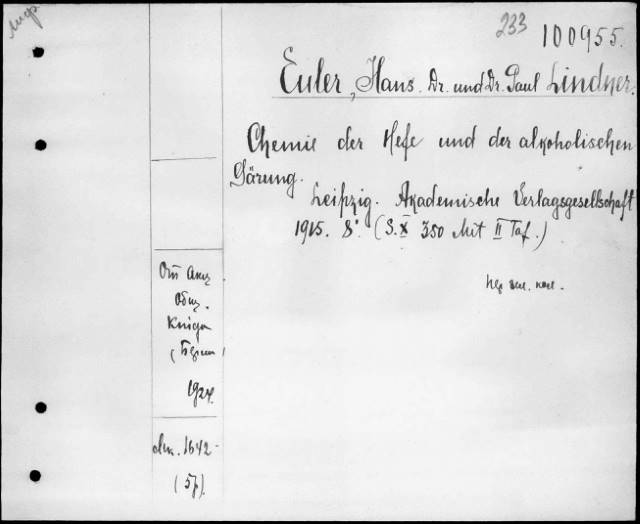 233
100955.
Euler, Hans. Dr. und Dr. Paul Lindner.
Chemie der Hefe und der alkoholischen
Gärung.
Leipzig. Akademische Verlagsgesellschaft
1915. 8°. (S. X 350 Mit II Taf.)
Книга
1924.
1642
(57).